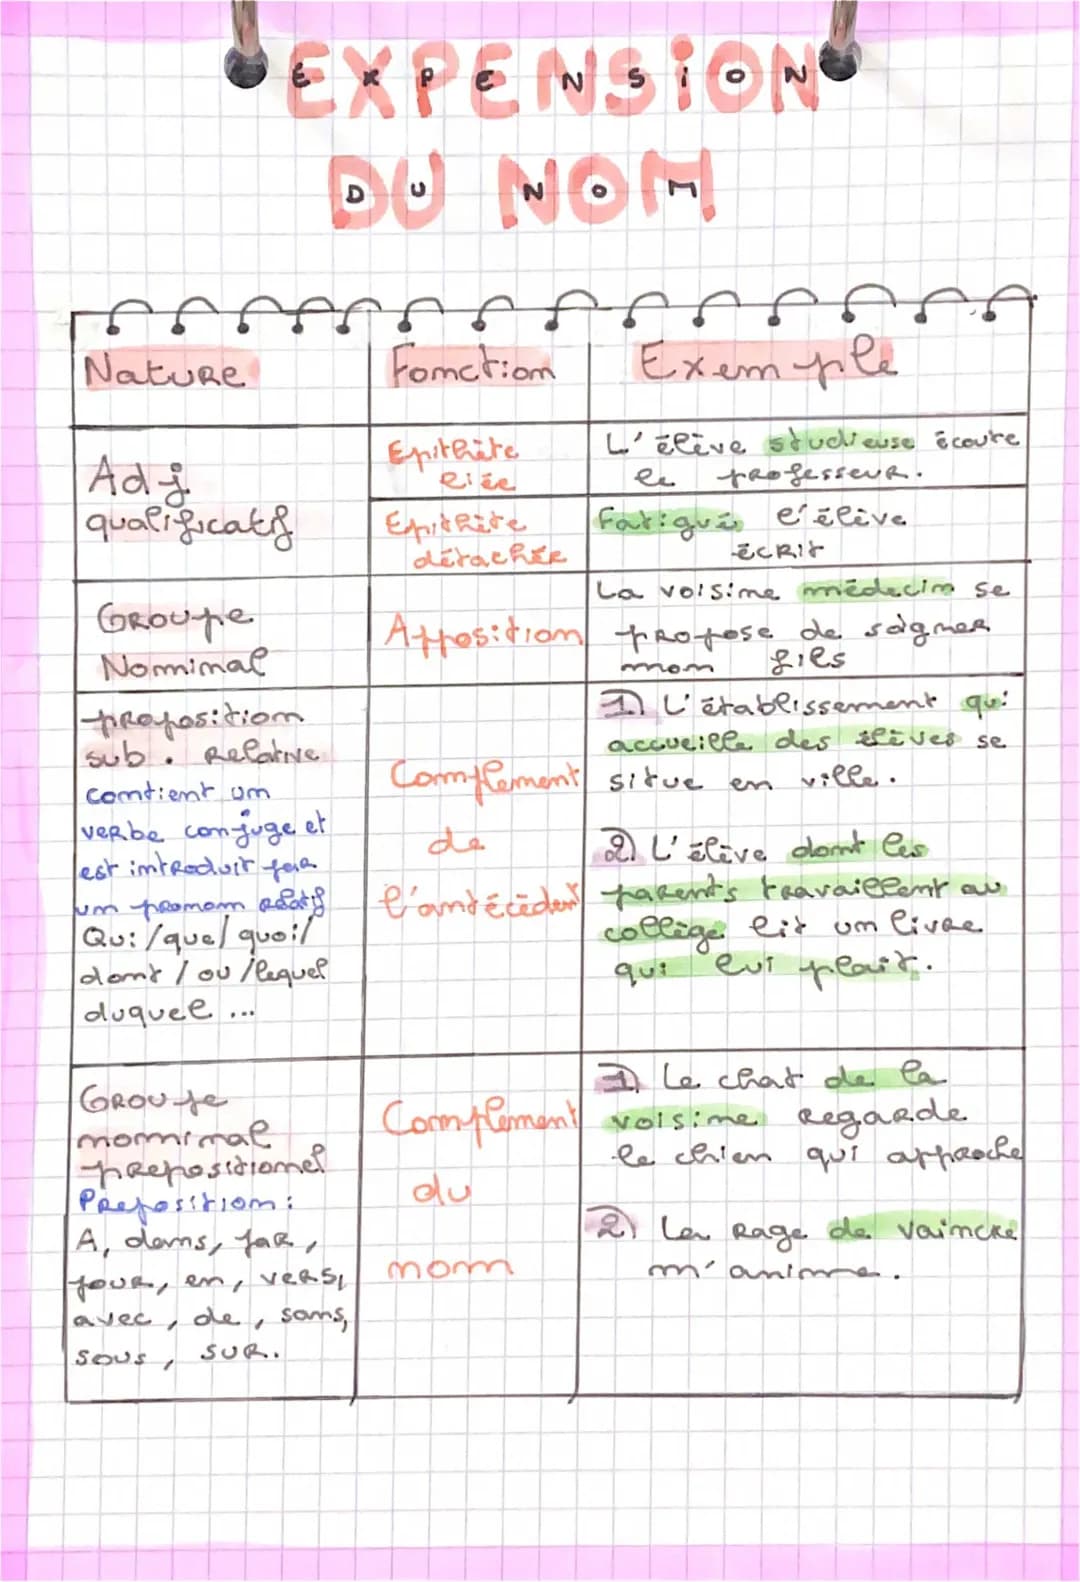 EXPENSION
DU NOM
Nature
Fonction
Exemple
Adj
qualificatif
Epithète
liée
L'élève studieuse écoute
le professeur.
Epithète
détachée
Fatigué, l'élève
écrit
Groupe
Nominal
Apposition
La voisine médecin se
propose de soigner
mon fils
proposition
sub. Relative
contient un
verbe conjuge et
est introduit par
un pronom relatif
Qui/que/quoi/
dont/ou/lequel
duquel ...
Complement
de
l'antécédent
1) L'établissement qui
accueille des élèves se
situe en ville.
2) L'élève dont les
parents travaillent au
collège lit un livre
qui lui plait.
Groupe
nominal
prepositionnel
Preposition:
A, dans, par,
pour, en, vers,
avec, de, sans,
sous, sur..
Complement
du
nom
1) Le chat de la
voisine regarde
le chien qui approche
2) La rage de vaincre
m'anime.